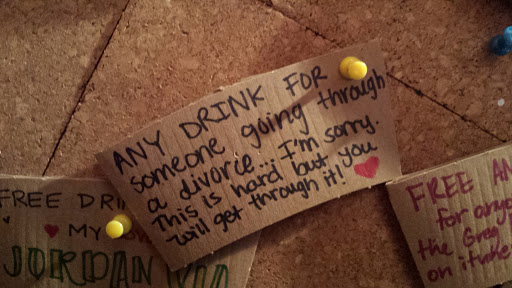 ANY DRINK FOR
someone going through
a divorce... I'm sorry.
This is hard but you
will get through it!
FREE
MY
JORDAN
FREE
for
the
on